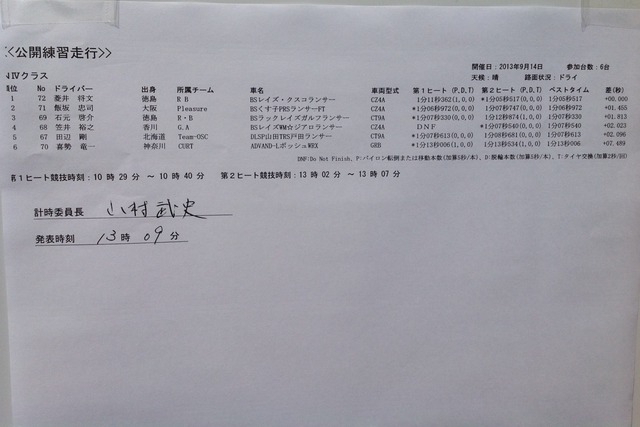 <<公開練習走行>>
開催日：2013年9月14日 参加台数：6台
NⅣクラス 天候：晴 路面状況：ドライ
順位 No ドライバー 出身 所属チーム 車名 車両型式 第１ヒート(P,D,T) 第２ヒート(P,D,T) ベストタイム 差(秒)
1 72 菱井 将文 徳島 R B BSレイズ・クスコランサー CZ4A 1分11秒362(1,0,0) *1分05秒517(0,0,0) 1分05秒517 +00.000
2 71 飯坂 忠司 大阪 Pleasure BSくす子PRSランサーFT CZ4A *1分06秒972(0,0,0) 1分02秒747(0,0,0) 1分06秒972 +01.455
3 69 石元 啓介 徳島 R・B BSラックレイズガルフランサー CT9A *1分07秒330(0,0,0) 1分12秒874(1,0,0) 1分07秒330 +01.813
4 68 笠井 裕之 香川 G.A BSレイズWM☆ジアロランサー CZ4A DNF *1分07秒540(0,0,0) 1分07秒540 +02.023
5 67 田辺 剛 北海道 Team-OSC DLSP山田TRS戸田ランサー CT9A *1分07秒613(0,0,0) 1分08秒681(0,0,0) 1分07秒613 +02.096
6 70 喜勢 竜一 神奈川 CURT ADVAND-LボッシュWRX GRB *1分13秒006(1,0,0) 1分13秒534(1,0,0) 1分13秒006 +07.489
DNF:Do Not Finish, P:パイロン転倒または移動本数(加算5秒/本)、D:脱輪本数(加算5秒/本)、T:タイヤ交換(加算2秒/回)
第１ヒート競技時刻：10 時 29 分 ～ 10 時 40 分 第２ヒート競技時刻：13 時 02 分 ～ 13 時 07 分
計時委員長 山村 武史
発表時刻 13 時 09 分